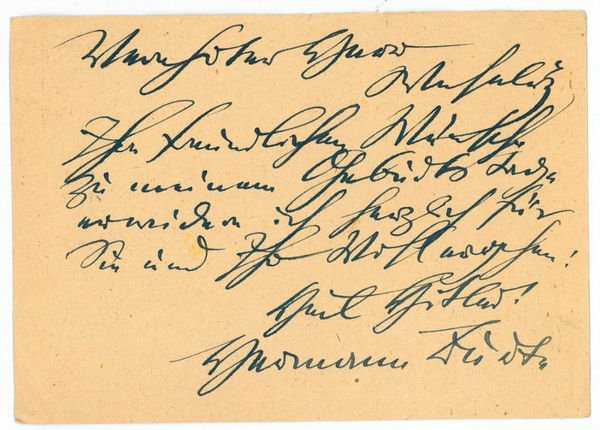 Verehrter Herr
Ihre freundlichen Wünsche
zu meinem Geburtstage
erwidere ich herzlich für
Sie und Ihr Wohlergehen!
Heil Hitler!
Hermann